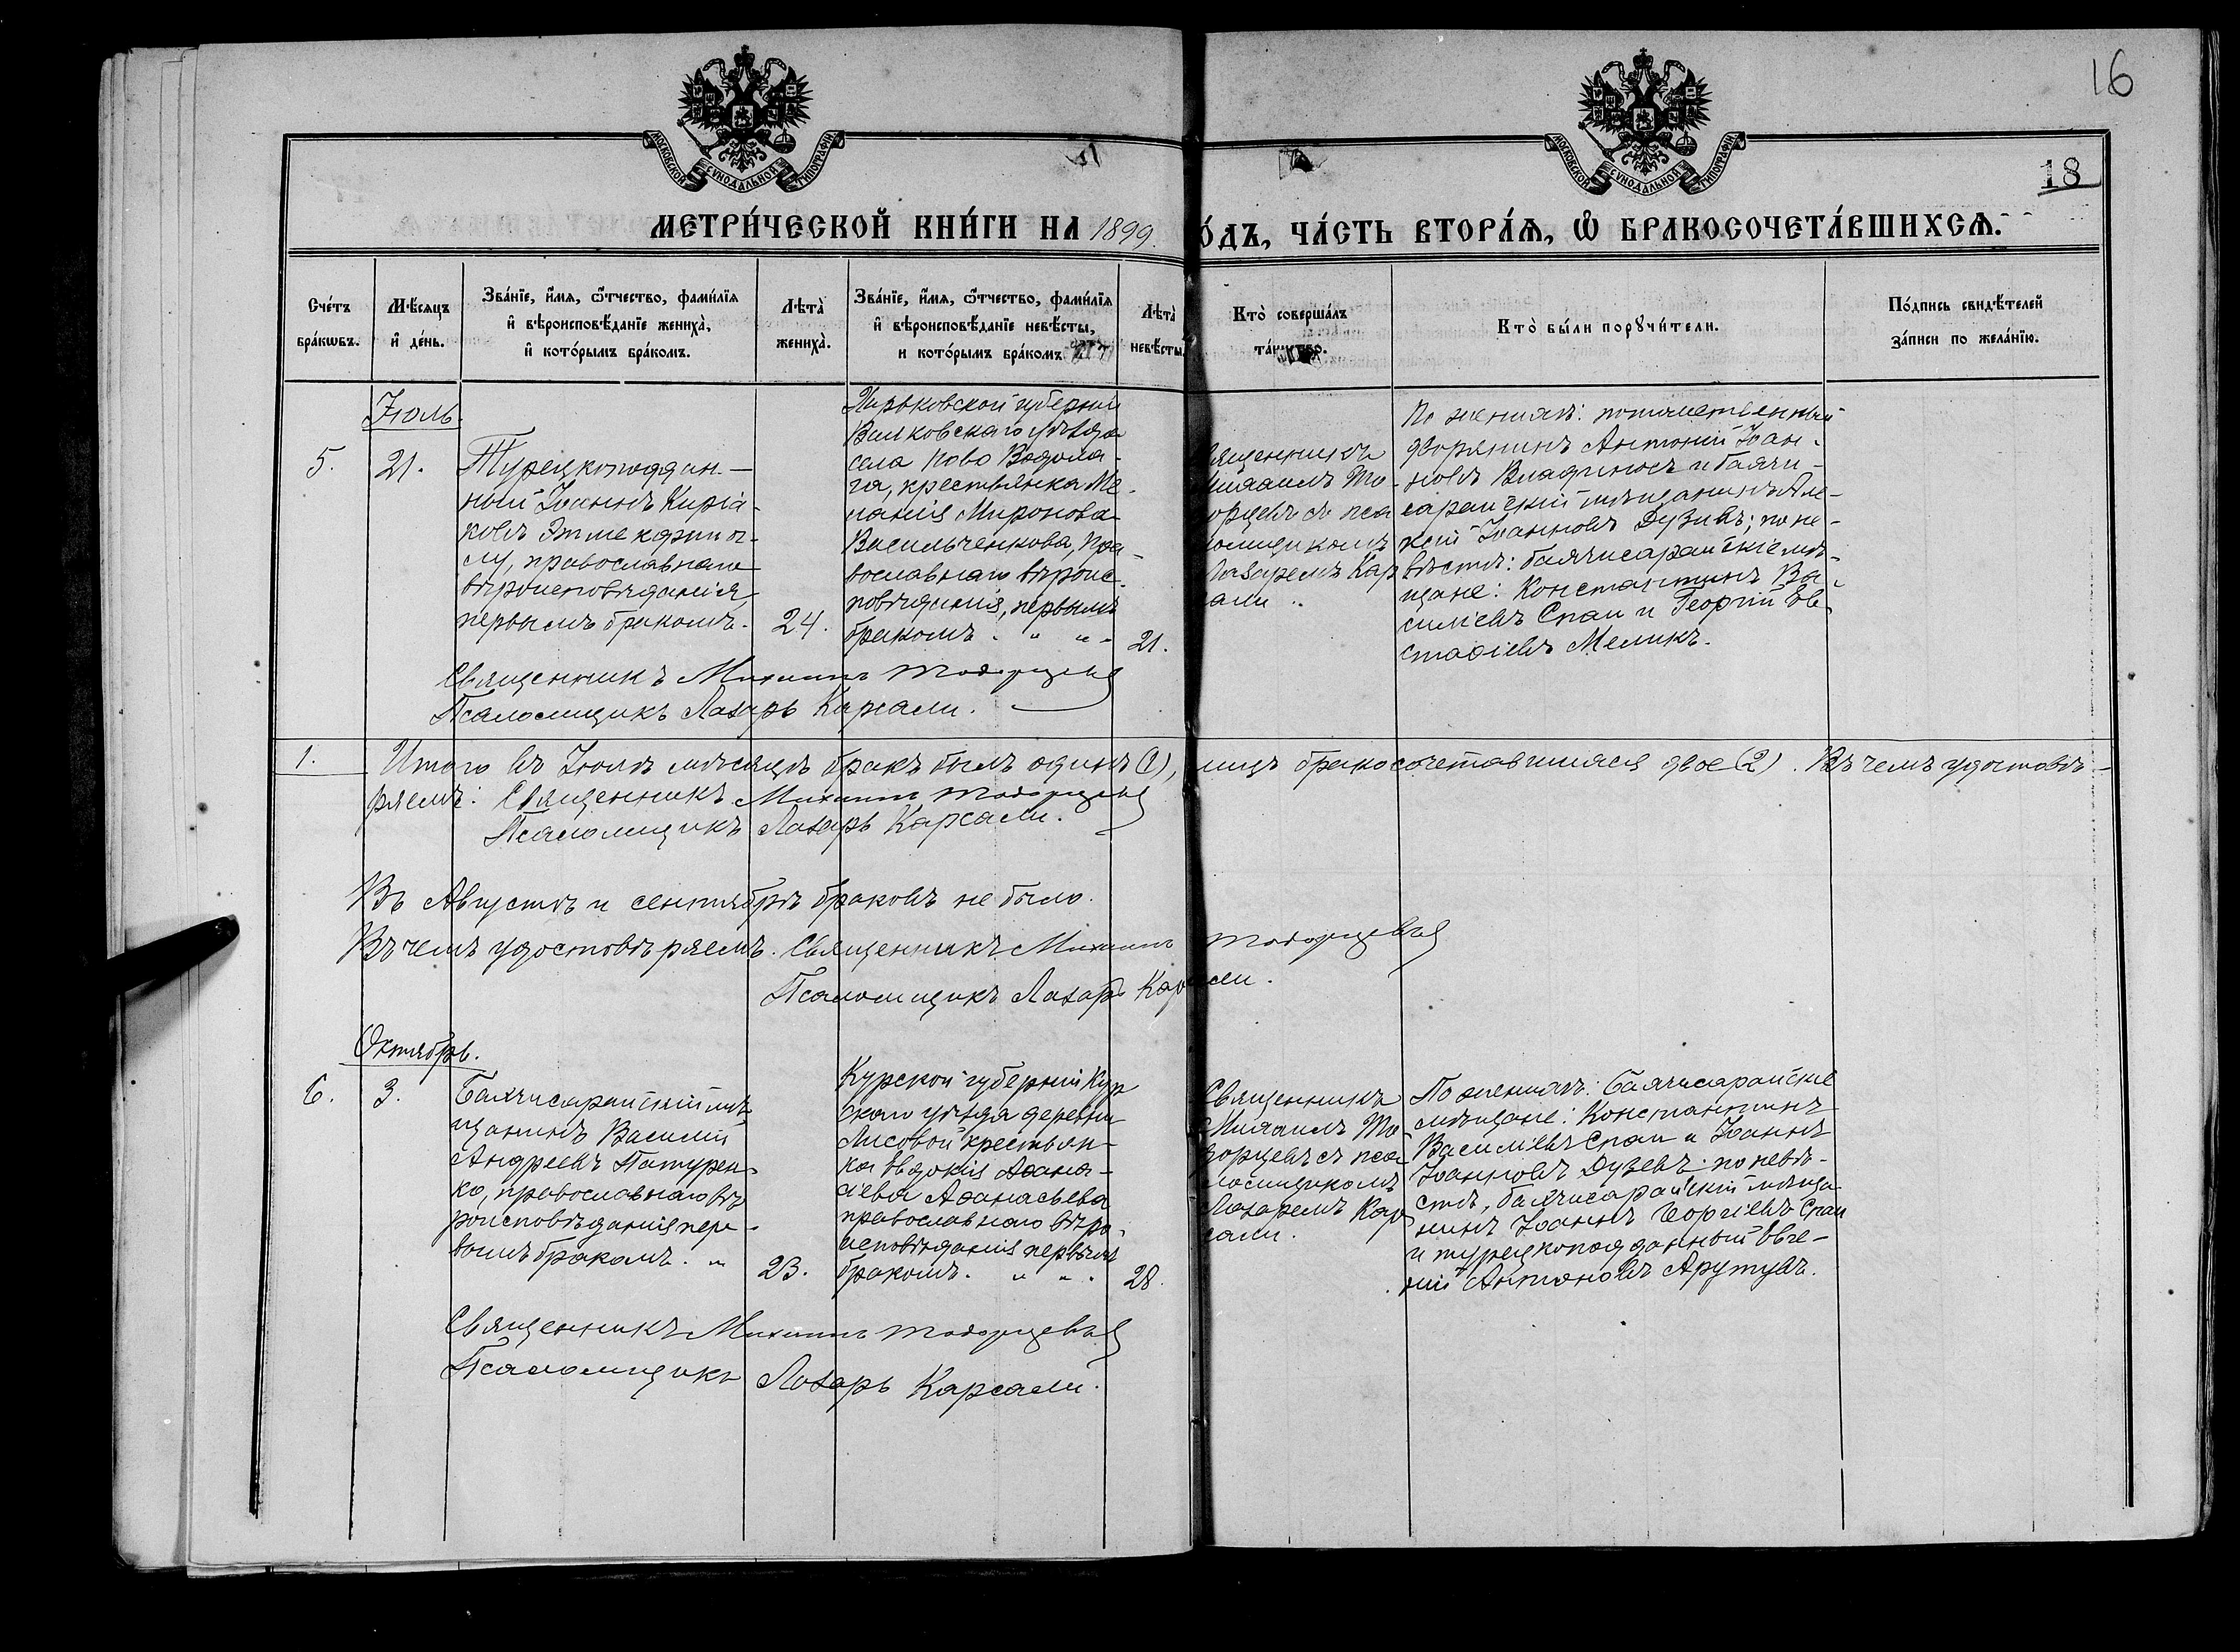 16
18
МОСКОВСКОЙ СѴНОДАЛЬНОЙ ТИПОГРАФІИ
МОСКОВСКОЙ СѴНОДАЛЬНОЙ ТИПОГРАФІИ
МЕТРИ́ЧЕСКОЙ КНИ́ГИ НА 1899.
О́ДЪ, ЧА́СТЬ ВТОРА́Ѧ, Ѡ҆ БРАКОСОЧЕТА́ВШИХСѦ.
Сче́тъ
бра́кѡвъ.
Мѣ́сяцъ
и҆ де́нь.
Зва́нїе, и҆́мя, ѻ҆́тчество, фами́лїя
и҆ вѣроисповѣ́данїе жениха̀,
и҆ кото́рымъ бра́комъ.
Лѣта̀
жениха̀.
Зва́нїе, и҆́мя, ѻ҆́тчество, фами́лїя
и҆ вѣроисповѣ́данїе невѣ́сты,
и кото́рымъ бра́комъ.
Лѣта̀
невѣ́сты.
Кто̀ соверша́лъ
та́инство.
Кто̀ бы́ли порꙋчи́тели.
По́дпись свидѣ́телей
за́писи по жела́нїю.
Іюль.
5.
21.
Турецкоподдан-
ный Іоаннъ Киріа-
ковъ
православнаго
вѣроисповѣданія,
первымъ бракомъ.
24.
Харьковской губерніи
Валковскаго уѣзда
села Ново Водола-
га, крестьянка Ме-
ланія Миронова
Васильченкова, пра-
вославнаго вѣроис-
повѣданія, первымъ
бракомъ. " " "
21.
вященникъ
Михаилъ То-
орцевъ съ пса
ломщикомъ
Лазаремъ Кар
сали.
По женихѣ: потомственный
дворянинъ Антоній Іоан-
новъ и бахчи-
сарайскій мѣщанинъ Але-
ксій Іоанновъ Дузивъ; по не-
вѣстѣ: бахчисарайскіе мѣ-
щане: Константинъ Ва-
силіевъ Спаи и Георгій Ев-
стафіевъ Меликъ.
Священникъ Михаилъ Тодорцевъ
Псаломщикъ Лазарь Карсали.
1.
Итого въ Іюлѣ мѣсяцѣ бракъ былъ одинъ (1), лицъ бракосочетавшихся двое (2). Въ чемъ удостовѣ-
ряемъ: Священникъ Михаилъ Тодорцевъ
Псаломщикъ Лазарь Карсали.
Въ Августѣ и сентябрѣ браковъ не было.
Въ чемъ удостовѣряемъ. Священникъ Михаилъ Тодорцевъ
Псаломщикъ Лазарь Карсали.
Октябрь.
6.
3.
Бахчисарайскій мѣ-
щанинъ Василій
Андреевъ Патурен-
ко, православнаго вѣ
роисповѣданія, пер-
вымъ бракомъ. "
23.
Курской губерніи Кур
скаго уѣзда деревни
Лисовой крестьян-
ка Евдокія Афана-
сіева Афанасьева
православнаго вѣро-
исповѣданія первымъ
бракомъ. " " "
28.
Священникъ
Михаилъ То-
дорцевъ съ пса
ломщикомъ
Лазаремъ Кар
сали.
По женихѣ: бахчисарайскіе
мѣщане: Константинъ
Василіевъ Спаи и Іоаннъ
Іоанновъ Дузевъ; по невѣ-
стѣ, бахчисарайскій мѣща
нинъ Іоаннъ Георгіевъ Спаи
и турецкоподданный Евге-
ній Антоновъ Арутувъ.
Священникъ Михаилъ Тодорцевъ
Псаломщикъ Лазарь Карсали.